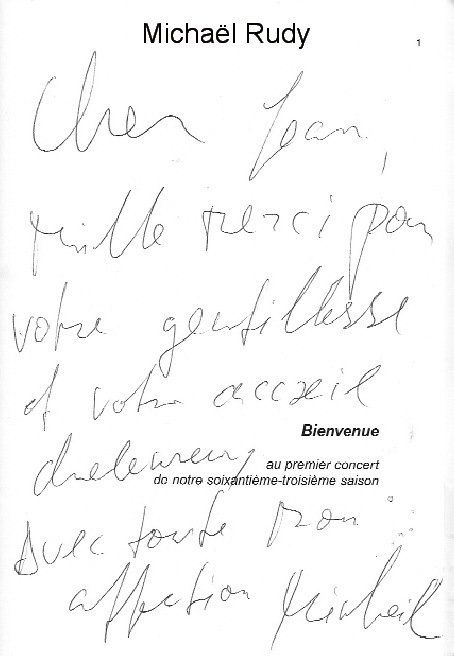 Michaël Rudy
1
Cher Jean,
mille merci pour
votre gentillesse
et votre accueil
chaleureux
Bienvenue
au premier concert
de notre soixantième-troisième saison
Avec toute mon
affection Michaïl